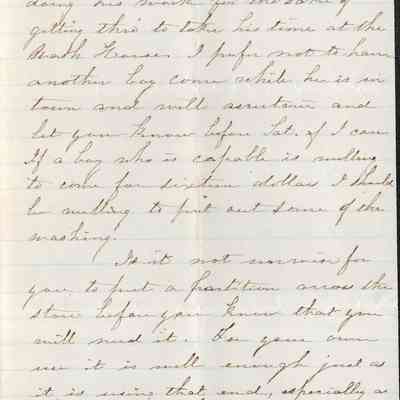 doing his work for the sake of
getting thro' to take his time at the
Wash House. I prefer not to have
another boy come while he is in
town and will ascertain and
let you know before Sat. if I can
If a boy who is capable is willing
to come for sixteen dollars I should
be willing to put out some of the
washing.
Is it not unwise for
you to put a partition across the
store before you know that you
will need it. For your own
use it is well enough just as
it is using that end, especially as